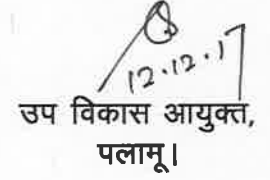 12.12.17
उप विकास आयुक्त,
पलामू।